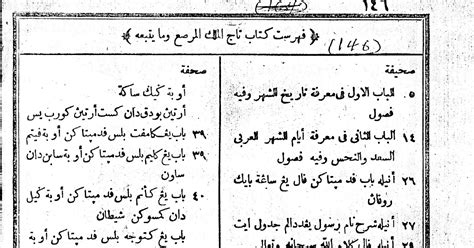 ١٤٦
﴿ فهرست كتاب تاج الملك المرصع وما يتبعه ﴾
(146)
صحيفة
٥ الباب الاول فى معرفة تاريخ الشهر وفيه
فصول
١٤ الباب الثانى فى معرفة أيام الشهر العربى
السعد والنحس وفيه فصول
٢٦ أنيله باب فد ميتاكن فال يغ ساغة بايك
٢٧ أنيله شرح تام رسول يغددالم جدول ايت
صحفة
أوبة كيك ساكة
أرتين بودق دان كست أرتين كورب يس
٣٩ باب يغ كامفت بلس فد ميتاكن أوبة فيتم
٣٩ باب يغ كليم بلس فد ميتاكن أوبة سابن دان
ساون
٤٠ باب يغ كأنم بلس فد ميتاكن أوبة كيل
دان كمسوكن شيطان
باب يغ كتوجه بلس فد ميتاكن